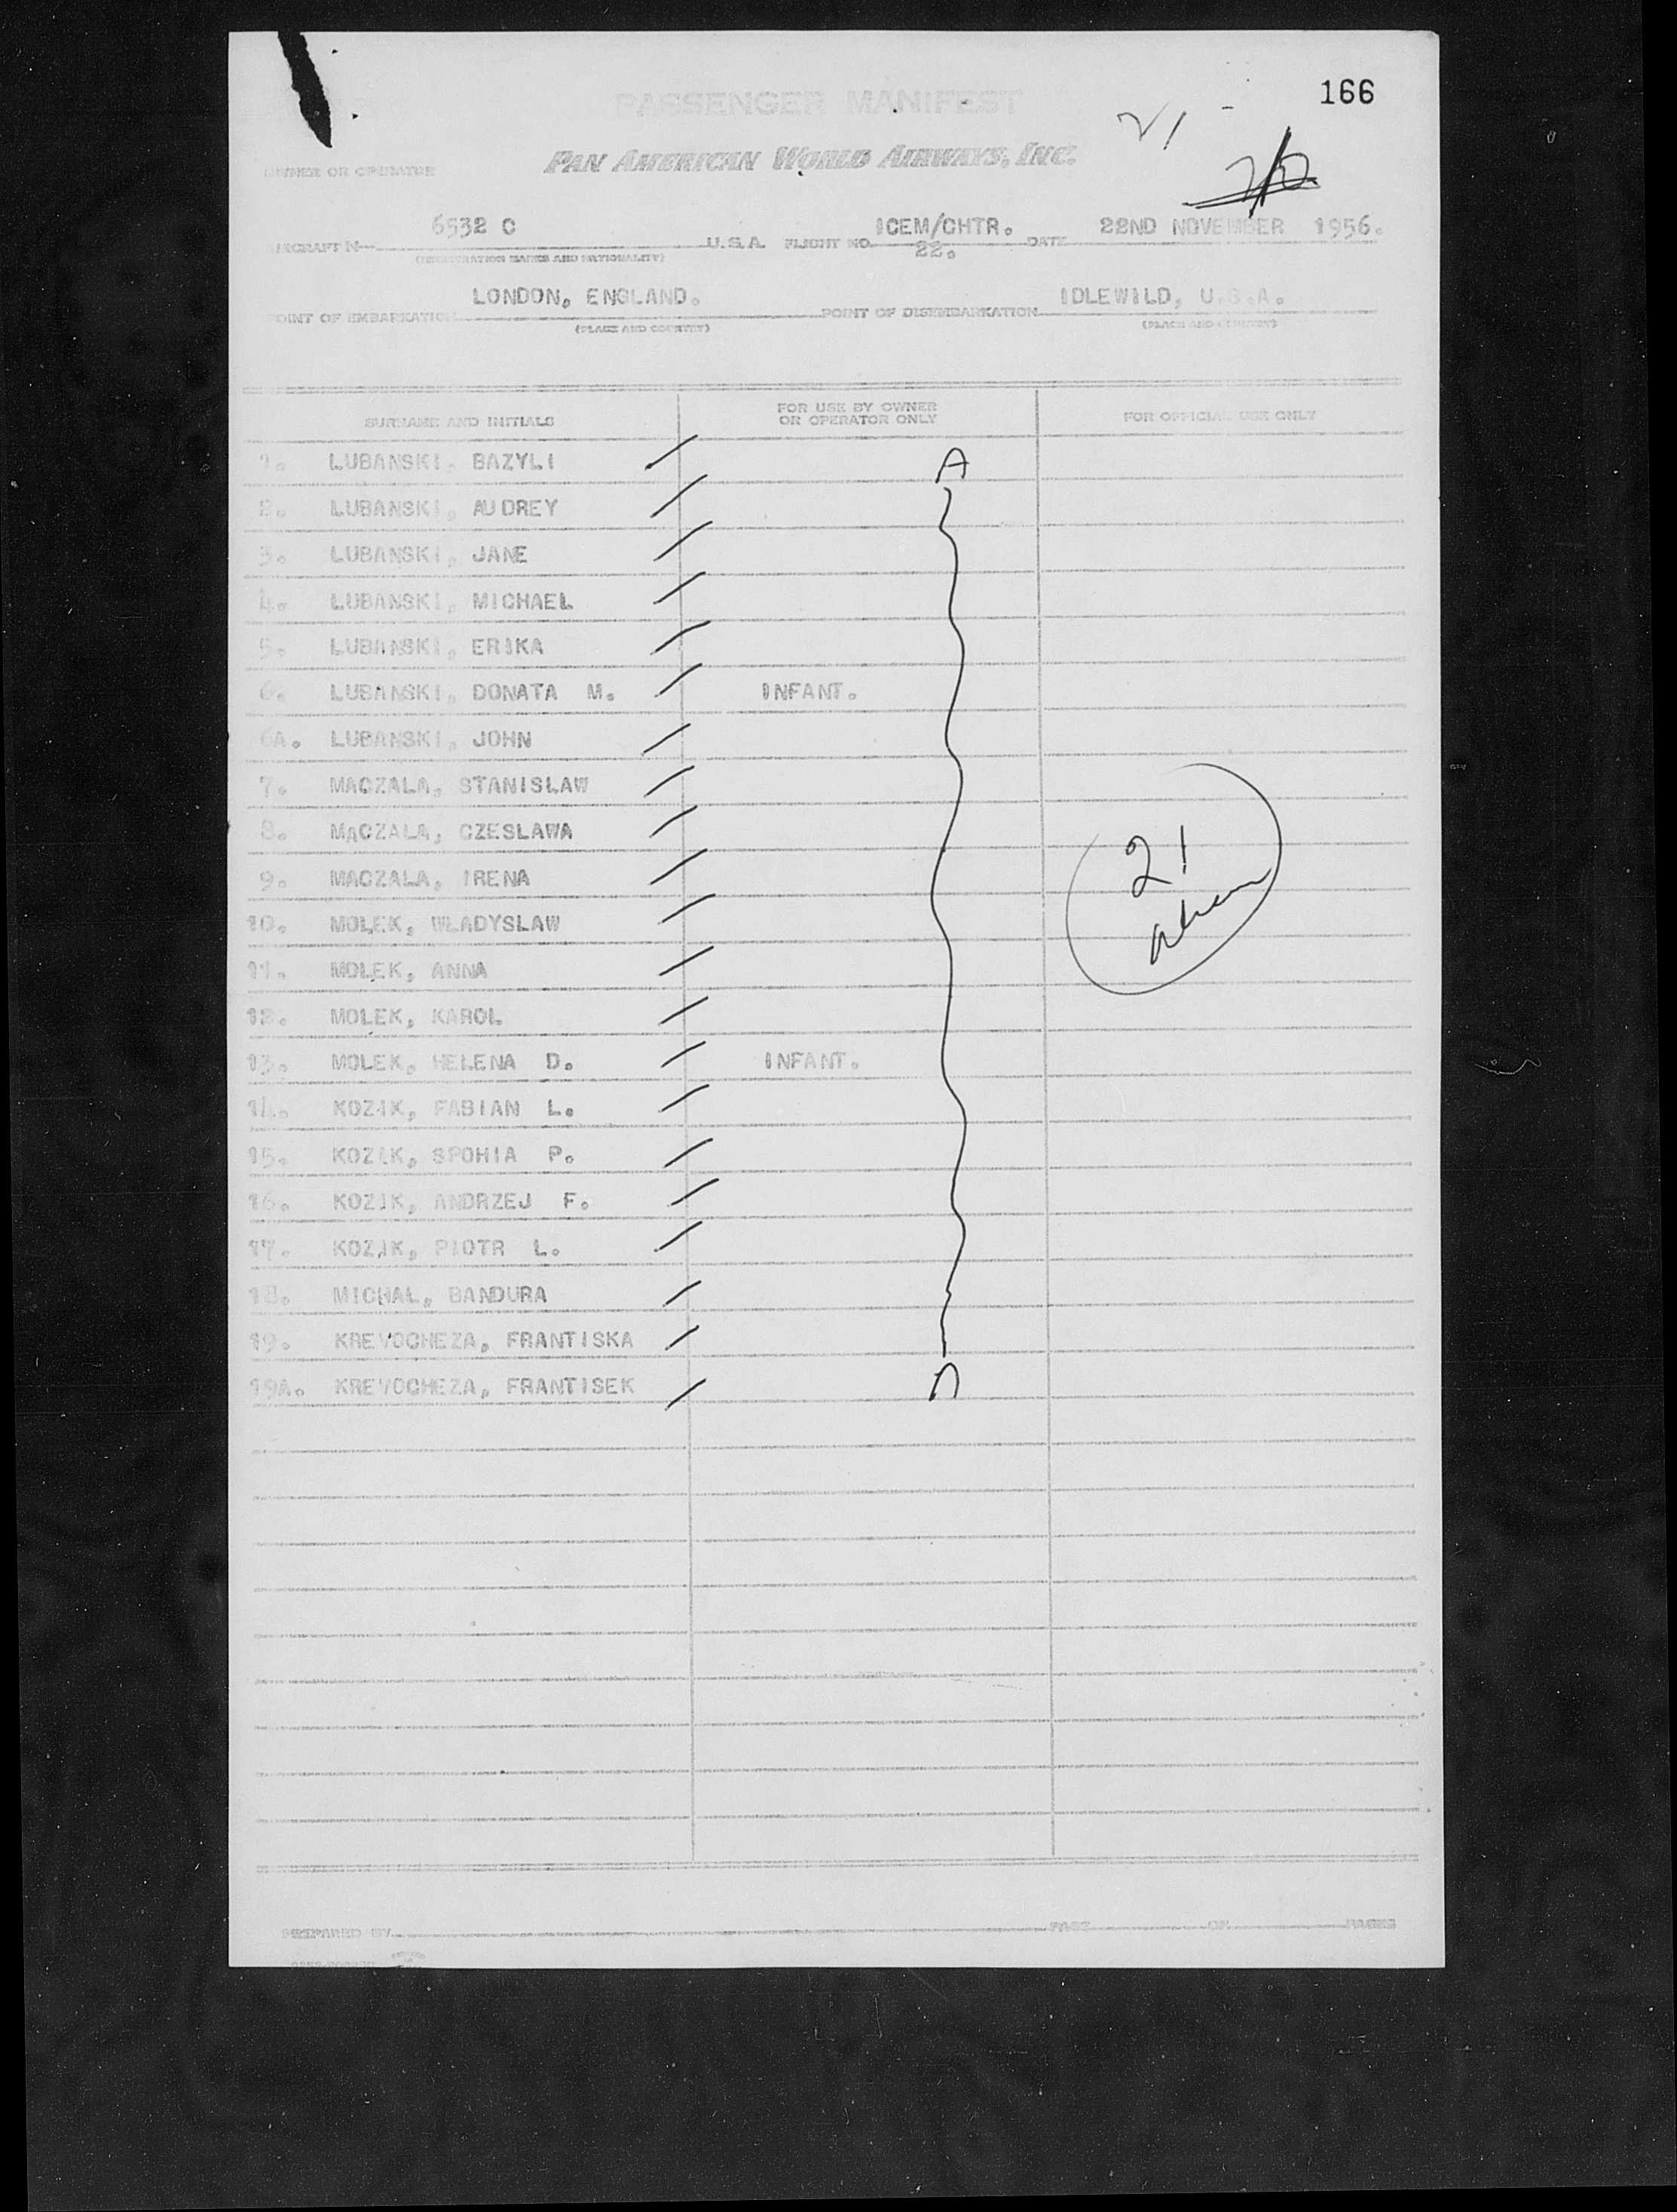 166
PASSENGER MANIFEST
21
PAN AMERICAN WORLD AIRWAYS, INC.
OWNER OR OPERATOR
6532 C
ICEM/CHTR.
22ND NOVEMBER 1956.
AIRCRAFT N
U.S.A. FLIGHT NO. 22. DATE
(REGISTRATION MARKS AND NATIONALITY)
LONDON, ENGLAND.
IDLEWILD, U.S.A.
POINT OF EMBARKATION
POINT OF DISEMBARKATION
(PLACE AND COUNTRY)
(PLACE AND COUNTRY)
SURNAME AND INITIALS
FOR USE BY OWNER
OR OPERATOR ONLY
FOR OFFICIAL USE ONLY
1. LUBANSKI, BAZYLI A
2. LUBANSKI, AUDREY
3. LUBANSKI, JANE
4. LUBANSKI, MICHAEL
5. LUBANSKI, ERIKA
6. LUBANSKI, DONATA M. INFANT.
6A. LUBANSKI, JOHN
7. MACZALA, STANISLAW
8. MACZALA, CZESLAWA
21
9. MACZALA, IRENA
10. MOLEK, WLADYSLAW
11. MOLEK, ANNA
12. MOLEK, KAROL
13. MOLEK, HELENA D. INFANT.
14. KOZIK, FABIAN L.
15. KOZIK, SPOHIA P.
16. KOZIK, ANDRZEJ F.
17. KOZIK, PIOTR L.
18. MICHAL, BANDURA
19. KREVOCHEZA, FRANTISKA
19A. KREVOCHEZA, FRANTISEK A
PREPARED BY
PAGE OF PAGES